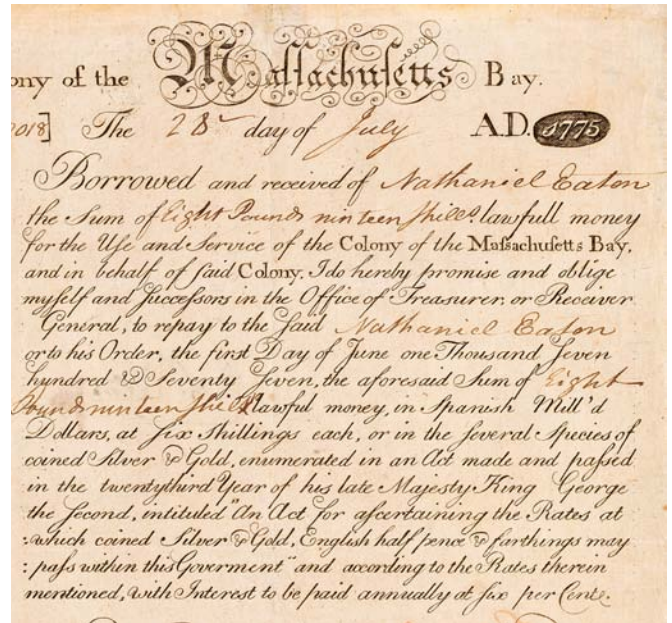 ony of the Massachusetts Bay.
2018] The 28 day of July A.D. 1775
Borrowed and received of Nathaniel Eaton
the Sum of Eight Pounds ninteen shills lawfull money
for the Use and Service of the Colony of the Massachusetts Bay,
and in behalf of said Colony, I do hereby promise and oblige
myself and Successors in the Office of Treasurer, or Receiver
General, to repay to the said Nathaniel Eaton
or to his Order, the first Day of June one Thousand Seven
hundred & Seventy Seven, the aforesaid Sum of Eight
Pounds ninteen shills lawful money, in Spanish Mill'd
Dollars, at six Shillings each, or in the several Species of
coined Silver & Gold, enumerated in an Act made and passed
in the twentythird Year of his late Majesty King George
the second, intituled "An Act for ascertaining the Rates at
:which coined Silver & Gold, English half pence & farthings may
:pass within this Goverment" and according to the Rates therein
mentioned, with Interest to be paid annually at six per Cent.